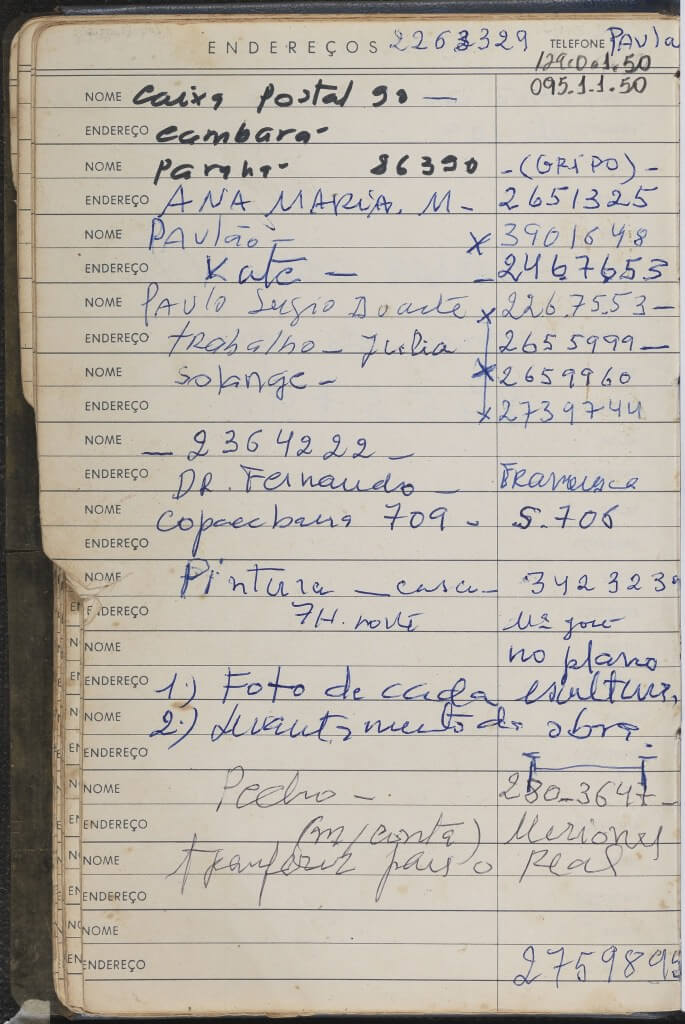 ENDEREÇOS 2263329 TELEFONE PAula
1290.1.50
095.1.1.50
NOME Caixa Postal 90 —
ENDEREÇO Cambara -
NOME Paraná - 86390 - (GRIPO) -
ENDEREÇO ANA MARIA. M - 2651325
NOME PAulão - x 3901648
ENDEREÇO Kate — - 2467653
NOME PAulo Sergio Duarte x 2267553 —
ENDEREÇO trabalho - Julia 2655999 —
NOME Solange - x 2659960
ENDEREÇO x 2739744
NOME — 2364222 —
ENDEREÇO DR. Fernando — Francisca
NOME Copacabana 709 - S. 706
ENDEREÇO
NOME Pintura — casa - 3423239
ENDEREÇO 7H. noite Mª José
NOME no plano
ENDEREÇO 1.) Foto de cada escultura,
NOME 2.) Levantamento da obra.
ENDEREÇO
NOME Pedro - 280-3647 -
ENDEREÇO (m/conta)
NOME transferir para o Real
ENDEREÇO
NOME
ENDEREÇO 2759895